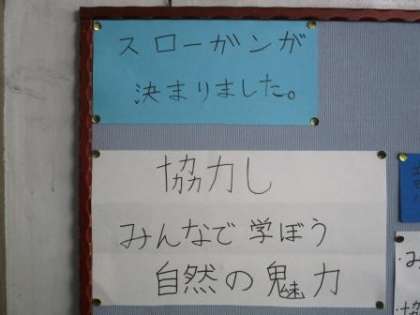 スローガンが
決まりました。
協力し
みんなで学ぼう
自然の魅力